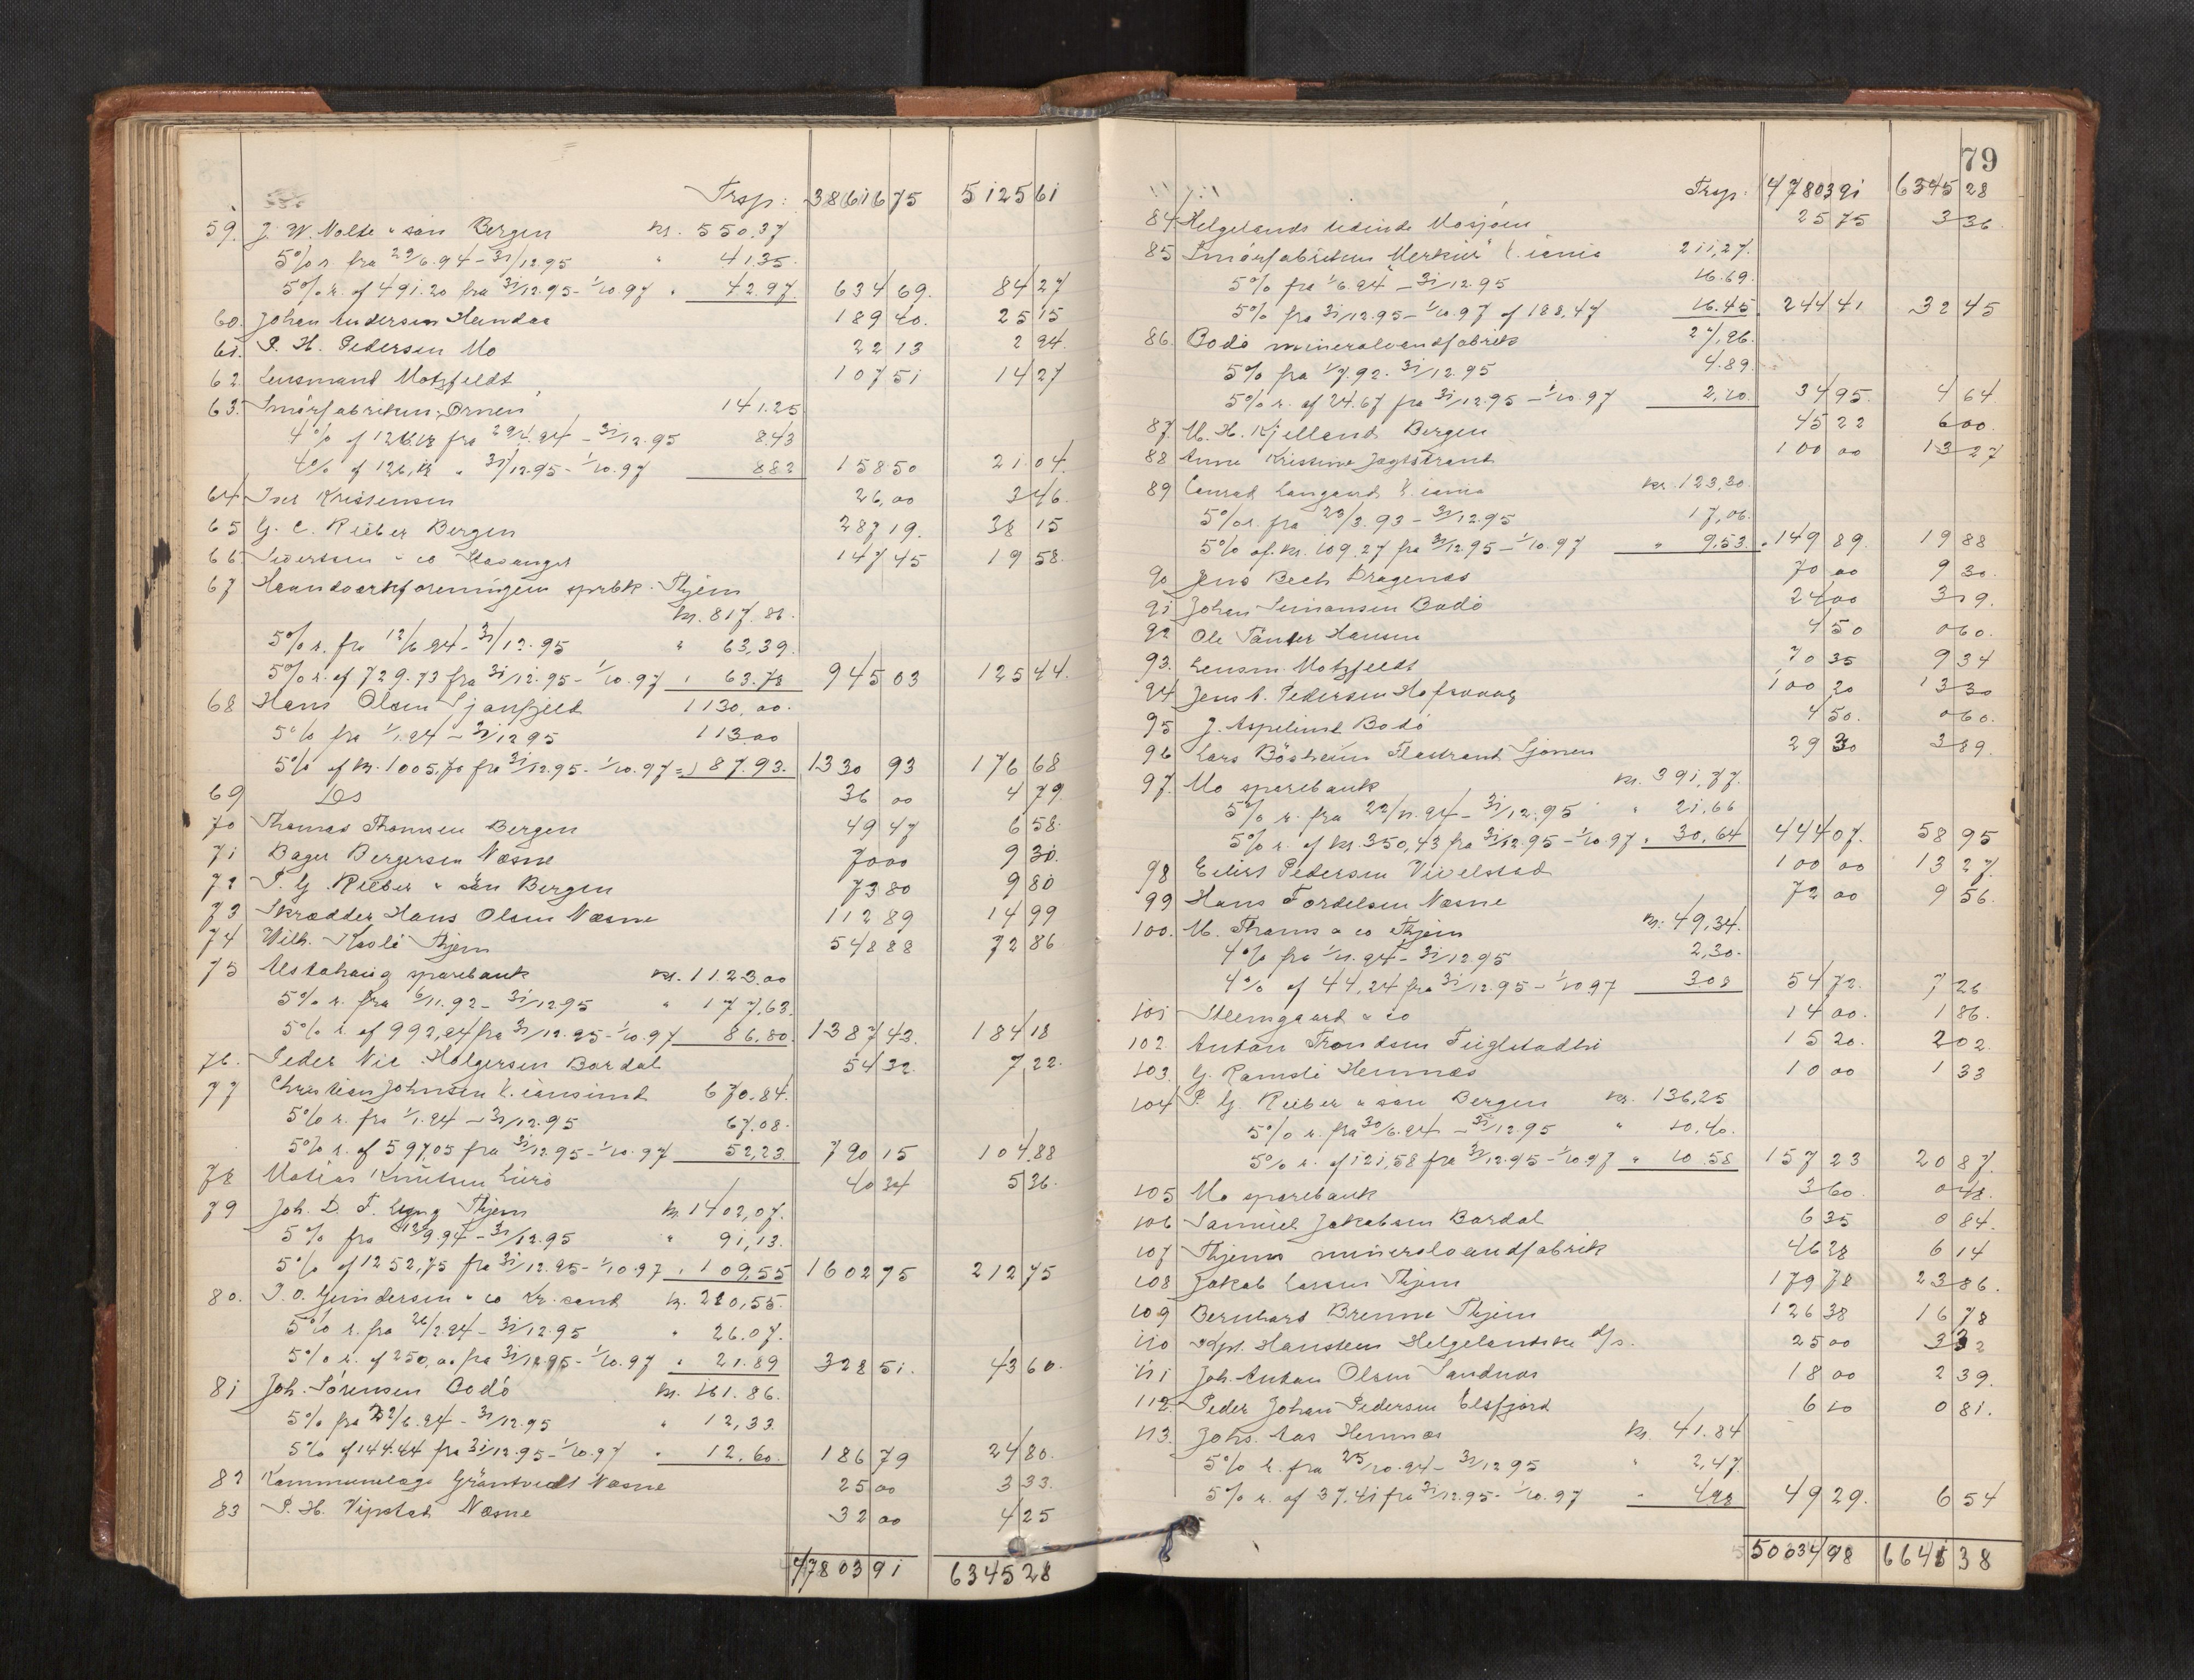 Trsp: 38616 75 5125 61
59. J. W. Nolte & sön Bergen kr. 550.37
5% r. fra 29/6.94 - 31/12.95 " 41.35.
5% r. af 491.20 fra 31/12.95 - 1/10.97 " 42.97. 634 69. 84 27
60. Johan Andersen Hundaa 189 40. 25 15
61. P. H. Pedersen Mo 22 13 2 94.
62. Lensmand Motzfeldt 107 51 14 27
63. Smörfabriken "Örnen" 141.25
4% af 126.12 fra 29/4.94 - 31/12.95 8.43
4% af 126,12 " 31/12.95 - 1/10.97 8.82 158 50 21 04.
64. Iver Kristensen 26,00 3 46.
65 G. C. Rieber Bergen 287 19. 38 15
66 & co Stavanger 147 45 19 58.
67 Haandverkforeningen sprbk. Thjem
kr. 817.86.
5% r. fra 12/6.94 - 31/12.95 " 63,39.
5% r. af 729.73 fra 31/12.95 - 1/10.97 " 63.78 945 03 125 44.
68 Hans Olsen Sjonfjeld 1130,00.
5% fra 1/1.94 - 31/12 95 113,00
5% af kr. 1005,70 fra 31/12.95 - 1/10.97 = 87.93. 1330 93 176 68
69 Ds 36 00 4 79
70 Thomas Thomsen Bergen 49 47 6 58.
71 Bager Bergersen Næsne 70 00 9 30.
72 P. G. Rieber & sön Bergen 73 80 9 80
73 Skrædder Hans Olsen Næsne 112 89 14 99
74 Wilh. Thjem 548 88 72 86
75 Alstahaug sparebank kr. 1123.00
5% r. fra 6/11.92 - 31/12.95 " 177,63.
5% r. af 992,94 fra 31/12.95 - 1/10.97 86,80. 1387 43. 184 18
76. Peder Nic. Holgersen Bardal 54 32. 7,22.
77 Christian Johnsen K.iansund 670.84.
5% r. fra 1/1.94 - 31/12.95 67.08.
5% r. af 597,05 fra 31/12.95 - 1/10.97 52,23 790 15 104.88
78 Matias Knutsen Lurö 40 34 5 36.
79 Joh. D. F. Lyng Thjem kr. 1402,07.
5% fra 12/9.94 - 31/12.95 " 91,13.
5% af 1252,75 fra 31/12.95 - 1/10.97 " 109,55 1602 75 212 75
80. J. O. Gundersen & co Kr.sand kr. 280,55.
5% r. fra 26/2.94 - 31/12.95 " 26.07.
5% r. af 250,00 fra 31/12.95 - 1/10.97 " 21.89 328 51. 43 60.
81 Joh. Sörensen Bodö kr. 161.86.
5% fra 22/6.94 - 31/12.95 " 12,33
5% af 144.44 fra 31/12.95 - 1/10.97 " 12.60. 186 79 24 80.
82 Gröntvedt Næsne 25 00 3 33.
83 P. H. Vipstad Næsne 32 00 4 25
47803 91 6345 28
79
Trsp. 47803 91 6345 28
84 Helgelands tidende Mosjöen 25 75 3 36
85 Smörfabriken "Merkur" K.iania 211,27.
5% fra 1/6.94 - 31/12.95 16.69.
5% fra 31/12.95 - 1/10.97 af 188,47 16.45. 244 41 32 45
86. Bodö mineralvandfabrik 27,86.
5% fra 1/7.92. 31/12.95 4.89.
5% r. af 24.67 fra 31/12.95 - 1/10.97 2,20. 34 95. 4 64
87. M. H. Kjelland Bergen 45 22 6 00.
88 Anne Kristine Jagtstrand 100 00 13 27
89 Conrad Langaard K.iania kr. 123,30.
5% r. fra 23/3.93 - 31/12.95 17,06.
5% af kr. 109.27 fra 31/12.95 - 1/10.97 " 9,53. 149 89. 19 88
90 Jens Bech Dragenes 70 00 9 30.
91 Johan Simonsen Bodö 24 00 3 19.
92 Ole Hansen 4 50 0 60.
93. Lensm. Motzfeldt 70 35 9 34
94 Jens A. Pedersen 100 20 13 30
95 J. Aspelund Bodö 4 50. 0 60.
96 Lars Flastrand Sjonen 29 30 3 89.
97. Mo sparebank kr. 391,77.
5% r. fra 22/11.94 - 31/12.95 " 21,66
5% r. af kr. 350,43 fra 31/12.95 - 1/10.97 " 30,64 444 07. 58 95
98 Eilert Pedersen Vivelstad 100 00 13 27.
99 Hans Tordelsen Næsne 72 00 9 56.
100. M. Thams & co Thjem kr. 49,34.
4% fra 1/11.94 - 31/12.95 2,30.
4% af 44,24 fra 31/12.95 - 1/10 97 3.08 54 72. 7 26
101 & co 14 00. 1 86.
102. Anton Trondsen 15 20. 2 02.
103. G. Ramsli Hemnes 10 00 1 33
104 P. G. Rieber & sön Bergen kr. 136,25
5% r. fra 30/6.94 - 31/12.95 " 10.40.
5% r. af 121,58 fra 31/12.95 - 1/10.97 " 10 58 157 23 20 87.
105 Mo sparebank 3 60. 0 48.
106 Samuel Jakobsen Bardal 6 35 0 84.
107 Thjems mineralvandfabrik 46 28 6 14
108 Jakob Larsen Thjem 179 78 23 86.
109 Bernhard Brenne Thjem 126 38 16 78
110 Kpt. Hansteen Helgelandske d/s. 25 00 3 32
111 Joh. Antan Olsen Sandnes 18 00 2 39.
112. Peder Johan Pedersen Elsfjord 6 10 0 81.
113. Johs. Aas Hemnes kr. 41.84
5% r. fra 25/10.94 - 31/12 95 " 2,47.
5% r. af 37,41 fra 31/12.95 - 1/10.97 " 4,98 49 29. 6 54
50034 98 6645 38